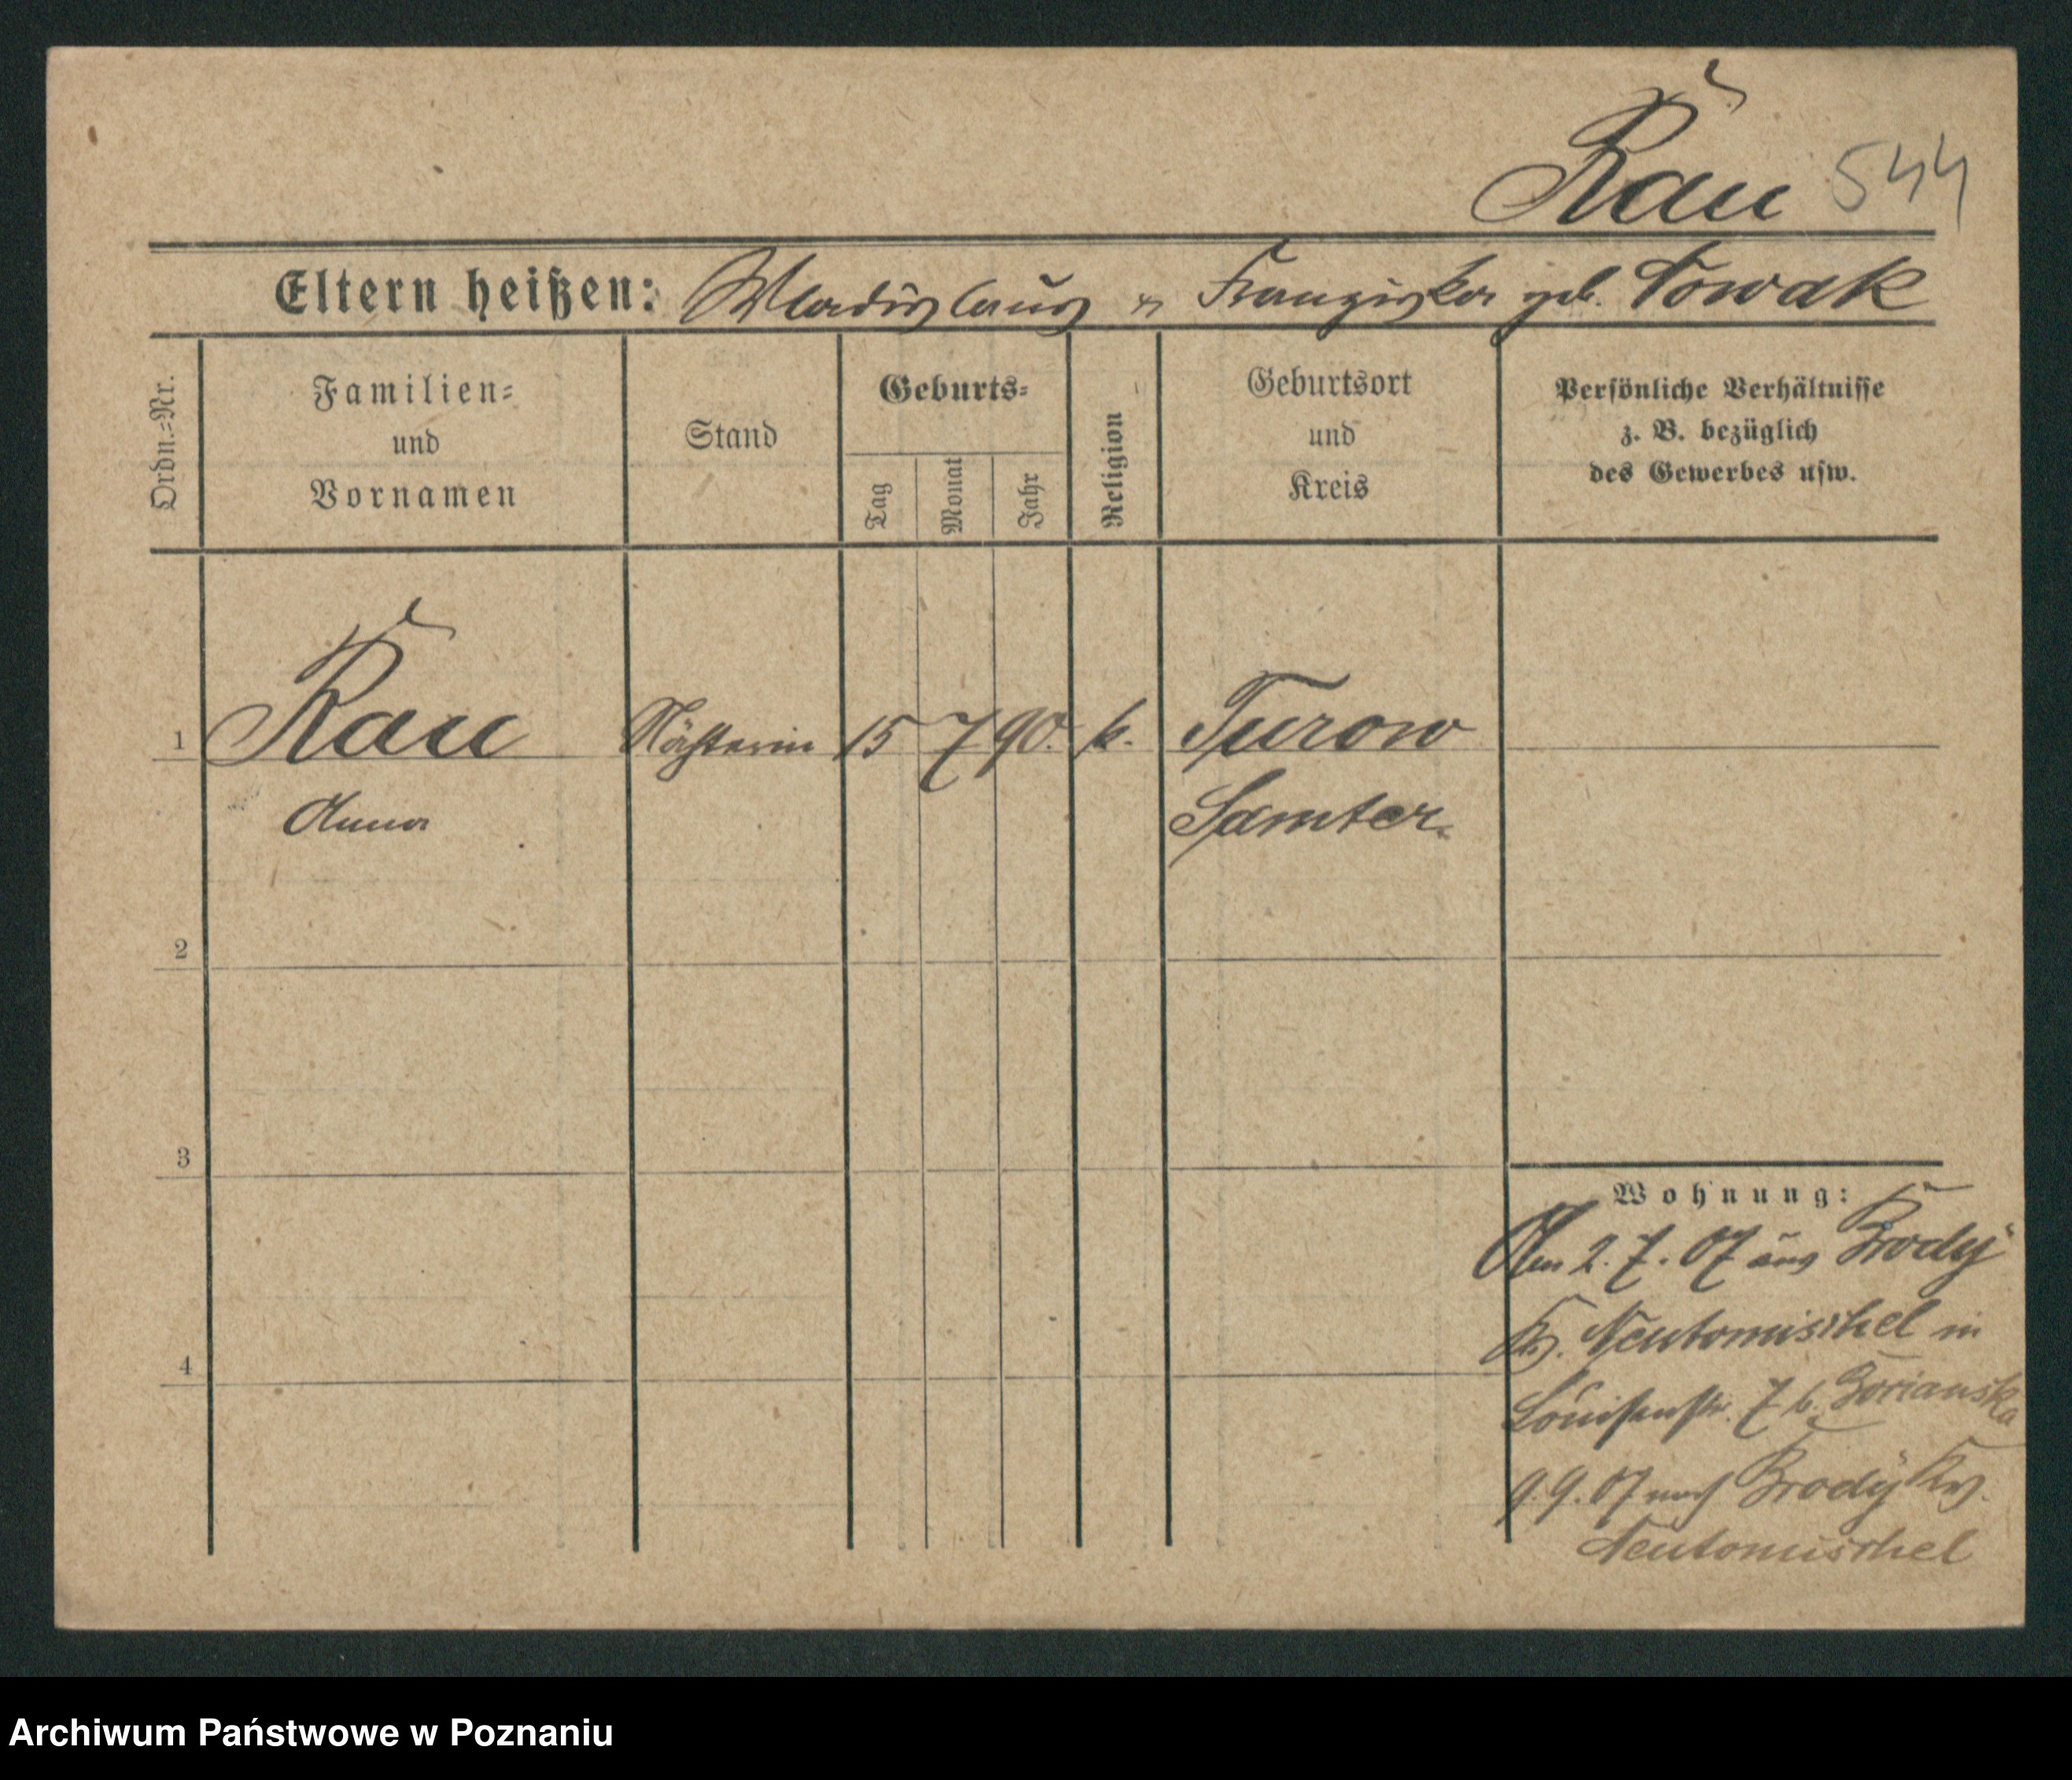 Rau 544
Eltern heißen: Wladislaus u Franziska geb. Nowak
Ordn.-Nr.
Familien-
und
Vornamen
Stand
Geburts-
Tag
Monat
Jahr
Religion
Geburtsort
und
Kreis
Persönliche Verhältnisse
z. B. bezüglich
des Gewerbes usw.
1 Rau Näherin 15 7 90. k. Turowo
Anna Samter.
2
3
4
Wohnung:
Am 2. 7. 07 aus Brody
Krs. Neutomischel in
Louisenstr. 7 b.
9. 9. 07 nach Brody Krs.
Neutomischel
Archiwum Państwowe w Poznaniu